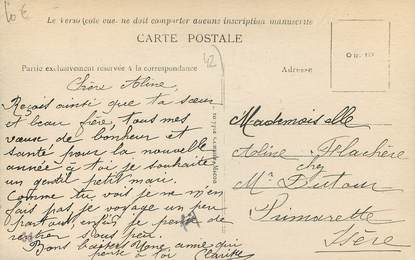 10 €
Le verso (côté vue) ne doit comporter aucune inscription manuscrite
CARTE POSTALE
Partie exclusivement réservée à la correspondance
Adresse
Chère Aline,
Reçois ainsi que ta sœur
et beau frère, tous mes
vœux de bonheur et
santé pour la nouvelle
année à toi je souhaite
un gentil petit mari.
Comme tu vois je ne m'en
fais pas, je voyage un peu
partout, enfin je pense de
rentrer sous peu.
Bons baisers d'une amie qui
pense à toi Clarisse
Mademoiselle
Aline Flachère
chez
Mr Dutour
Pumarette
Isère